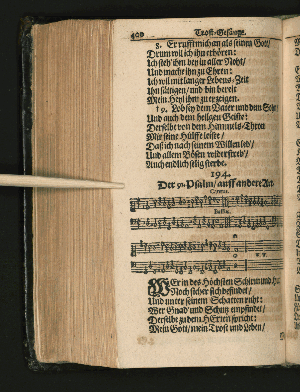 400 Trost-Gesänge.
8. Er rufft mich an als seinen Gott/
Drum wil ich ihn erhören:
Ich steh' ihm bey in aller Noht/
Und mache ihn zu Ehren:
Ich wil mit langer Lebens-Zeit
Ihn sättigen/ und bin bereit
Mein Heyl ihm zu erzeigen.
9. Lob sey dem Vater und dem
Und auch dem heilgen Geiste:
Derselbe von dem Himmels-Thron
Mir seine Hülffe leiste/
Daß ich nach seinem Willen leb/
Und allem Bösen widerstreb/
Auch endlich selig sterbe.
194.
Der 91. Psalm/ auff andere Art.
Cantus.
Bassus.
WEr in des Höchsten Schirm und
Noch sicher sich befindet/
Und unter seinem Schatten ruht:
Wer Gnad' und Schutz empfindet/
Derselbe zu dem HErren spricht:
Mein Gott/ mein Trost und Leben/